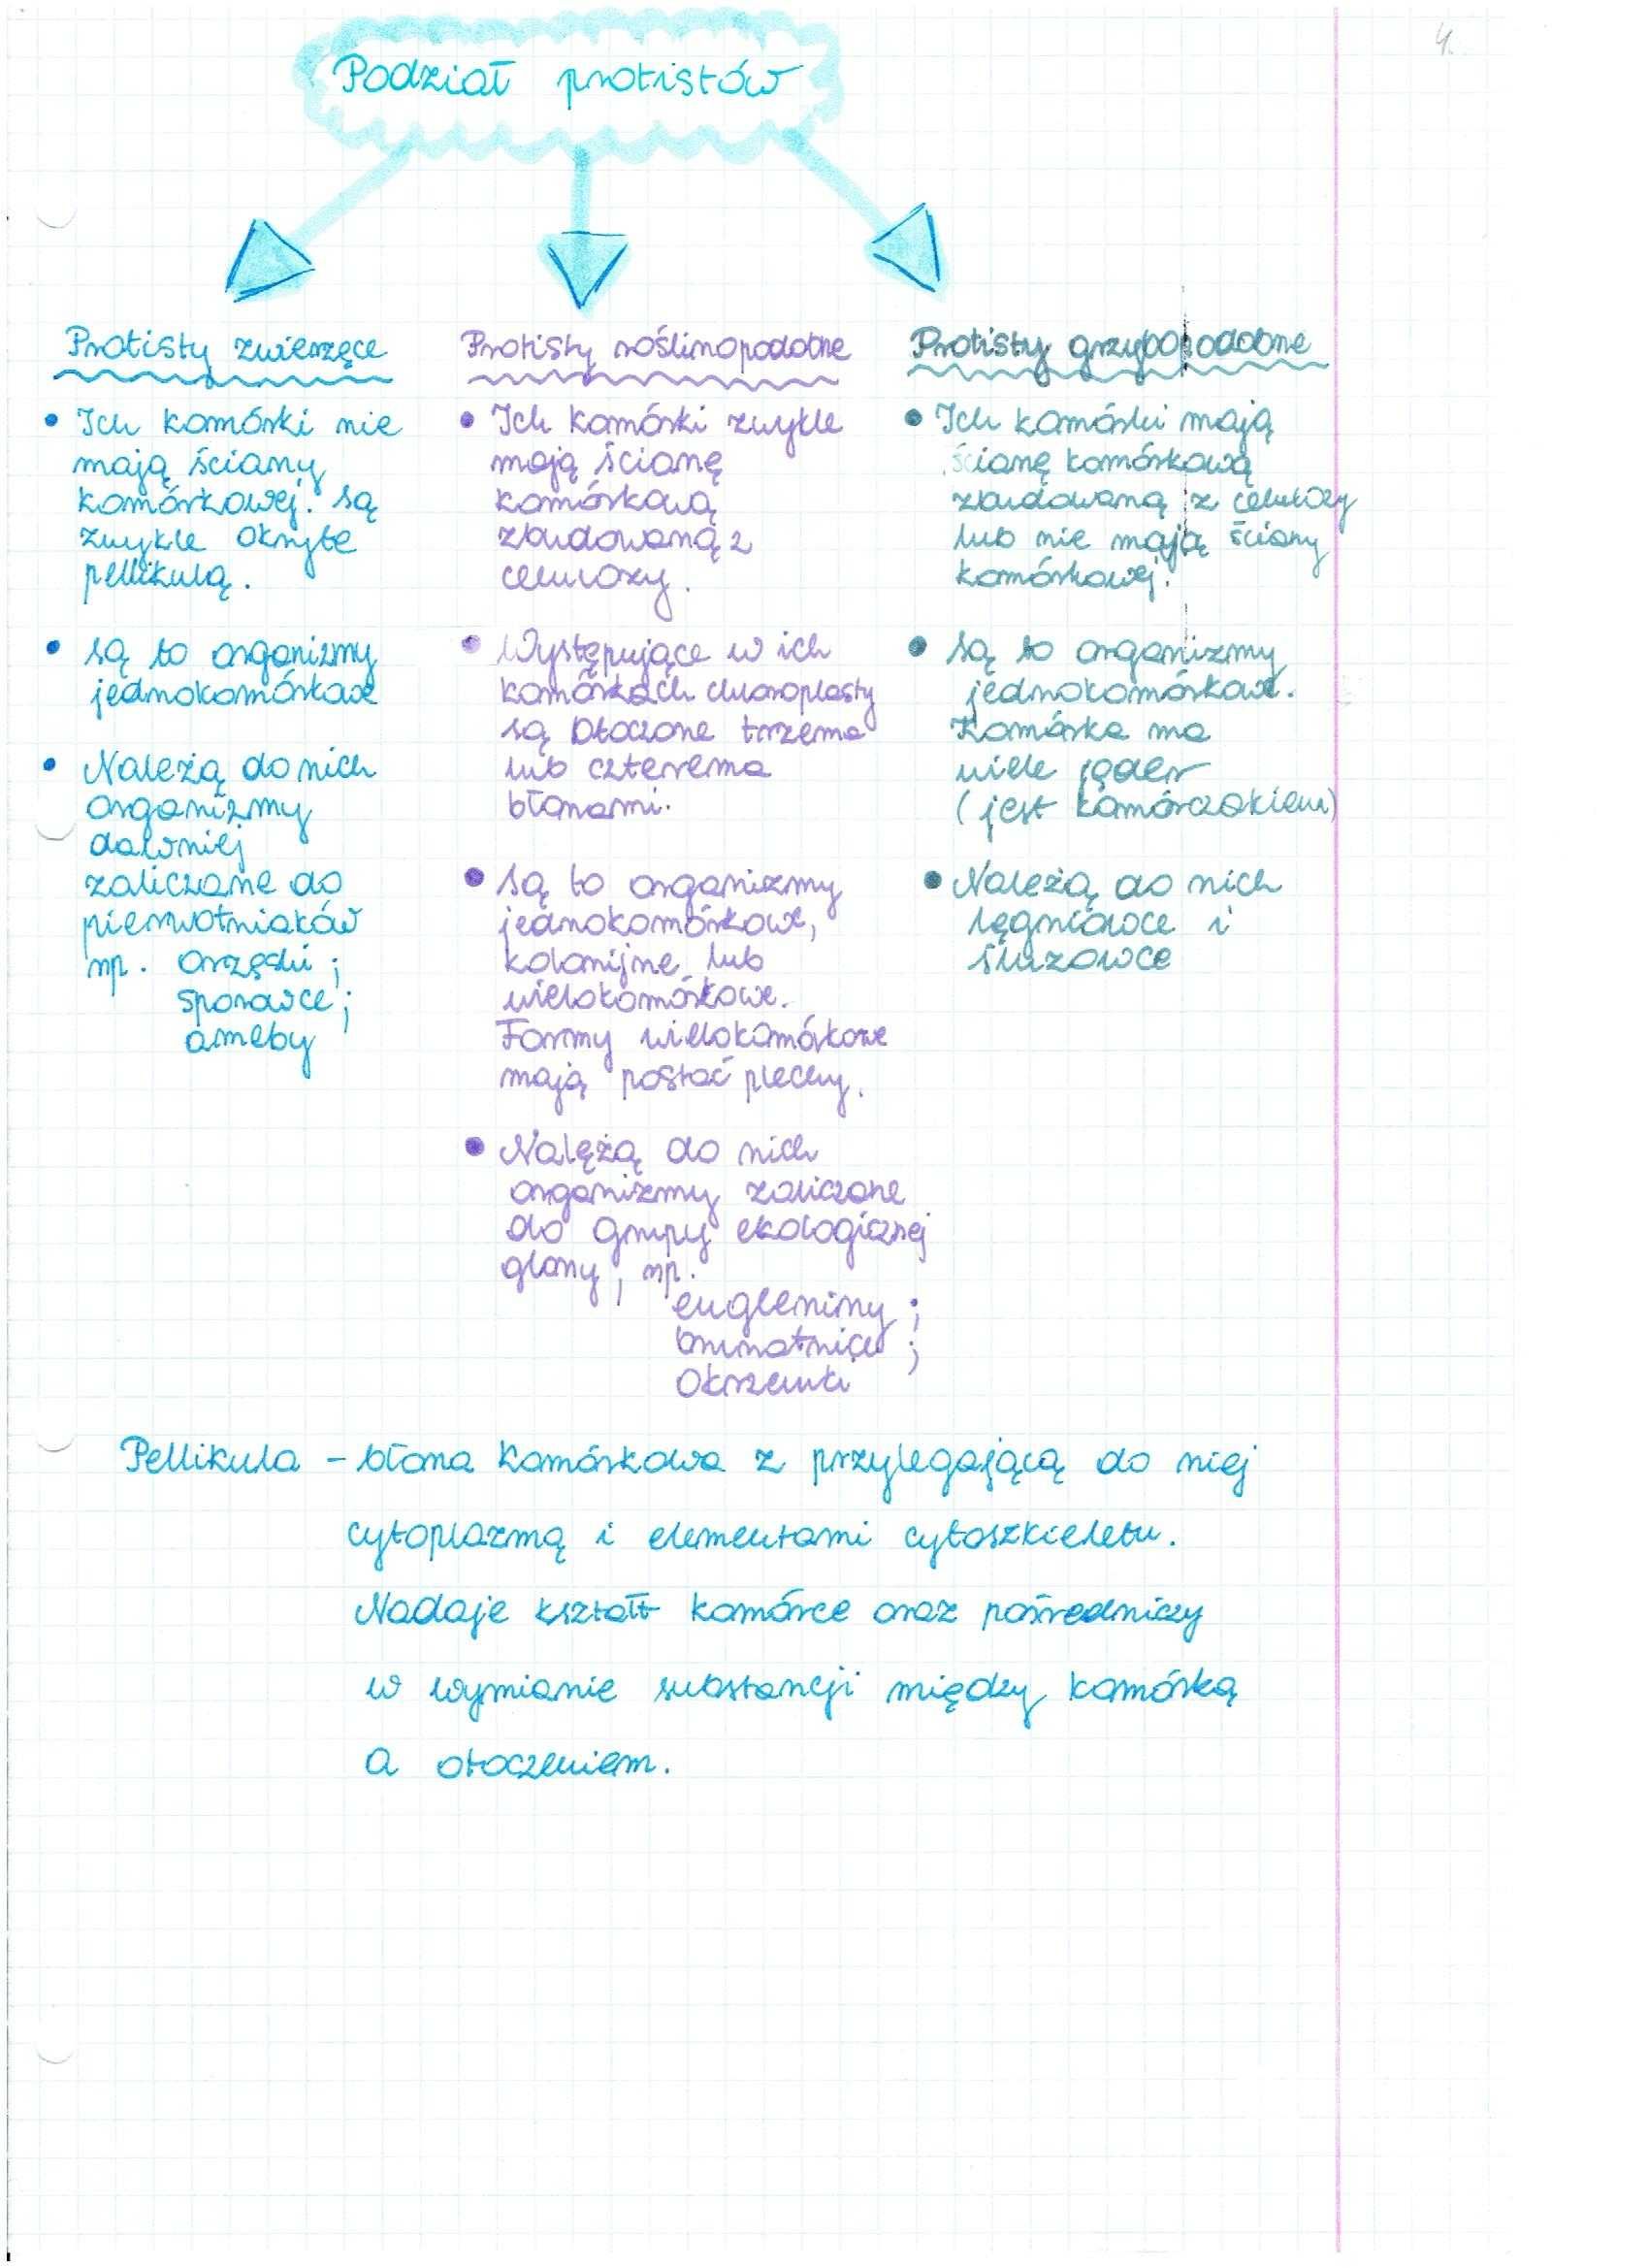 4.
Podział protistów
Protisty zwierzęce
• Ich komórki nie
mają ściany
komórkowej. są
zwykle okryte
pellikulą.
• są to organizmy
jednokomórkowe
• Należą do nich
organizmy
dawniej
zaliczane do
pierwotniaków
np. orzęski ;
sporowce ;
ameby
Protisty roślinopodobne
• Ich komórki zwykle
mają ścianę
komórkową
zbudowaną z
celulozy.
• Występujące w ich
komórkach chloroplasty
są otoczone trzema
lub czterema
błonami.
• są to organizmy
jednokomórkowe,
kolonijne lub
wielokomórkowe.
Formy wielokomórkowe
mają postać plechy.
• Nalężą do nich
organizmy zaliczane
do grupy ekologicznej
glony, np.
eugleniny ;
brunatnice ;
Okrzemki
Protisty grzybopodobne
• Ich komórki mają
ścianę komórkową
zbudowaną z celulozy
lub nie mają ściany
komórkowej.
• są to organizmy
jednokomórkowe.
Komórka ma
wiele jąder
(jest komórczakiem)
• Należą do nich
lęgniowce i
śluzowce
Pellikula - błona komórkowa z przylegającą do niej
cytoplazmą i elementami cytoszkieletu.
Nadaje kształt komórce oraz pośredniczy
w wymianie substancji między komórką
a otoczeniem.